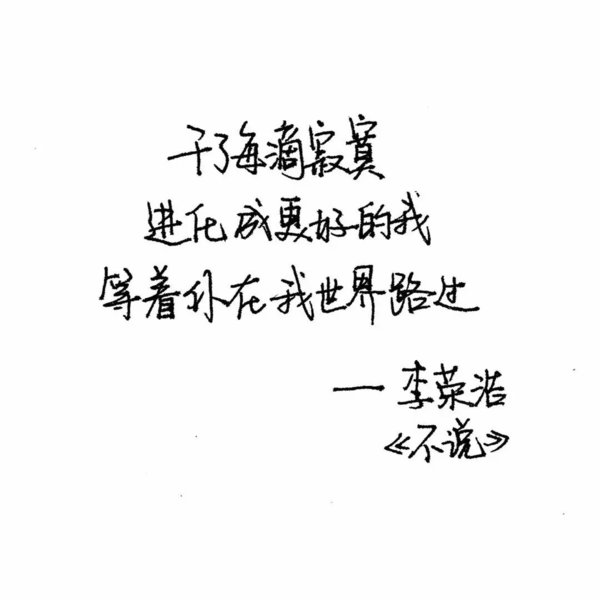 干了每滴寂寞
进化成更好的我
等着你在我世界路过
—李荣浩
《不说》